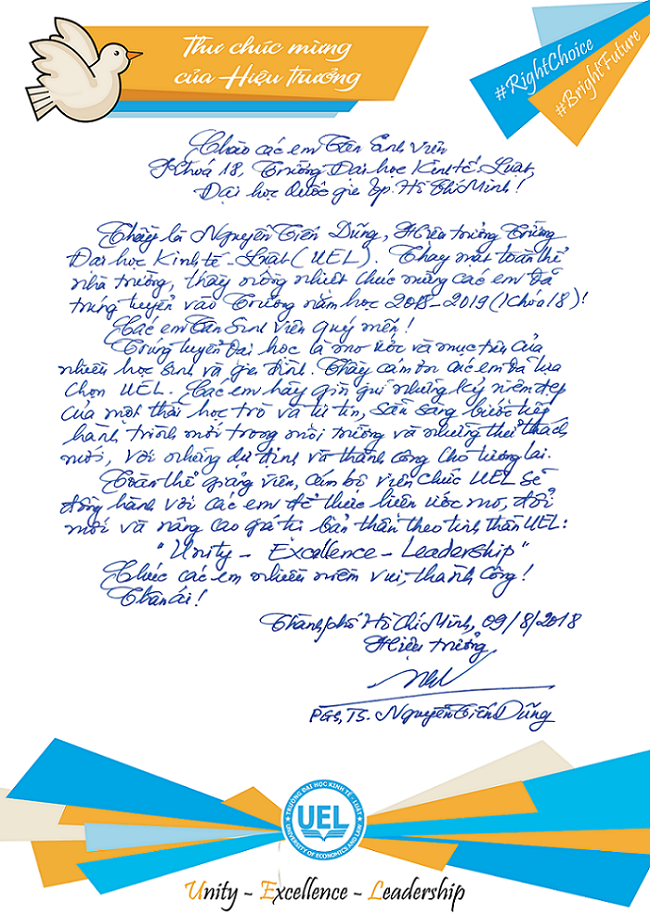 Thư chúc mừng
của Hiệu trưởng
#RightChoice
#BrightFuture
Chào các em Tân Sinh viên
Khoá 18, Trường Đại học Kinh tế-Luật,
Đại học Quốc gia Tp. Hồ Chí Minh!
Thầy là Nguyễn Tiến Dũng, Hiệu trưởng Trường
Đại học Kinh tế-Luật (UEL). Thay mặt toàn thể
nhà trường, thầy nồng nhiệt chúc mừng các em đã
trúng tuyển vào Trường năm học 2018-2019 (Khóa 18)!
Các em Tân Sinh viên quý mến!
Trúng tuyển Đại học là mơ ước và mục tiêu của
nhiều học sinh và gia đình. Thầy cảm ơn các em đã lựa
chọn UEL. Các em hãy gìn giữ những kỷ niệm đẹp
của một thời học trò và tự tin, sẵn sàng bước tiếp
hành trình mới trong môi trường và những thử thách
mới, với những dự định và thành công cho tương lai.
Toàn thể giảng viên, cán bộ viên chức UEL sẽ
đồng hành với các em để thực hiện ước mơ, đổi
mới và nâng cao giá trị bản thân theo tinh thần UEL:
"Unity - Excellence - Leadership"
Chúc các em nhiều niềm vui, thành công!
Thân ái!
Thành phố Hồ Chí Minh, 09/8/2018
Hiệu trưởng
PGS, TS. Nguyễn Tiến Dũng
TRƯỜNG ĐẠI HỌC KINH TẾ - LUẬT
UEL
UNIVERSITY OF ECONOMICS AND LAW
Unity - Excellence - Leadership